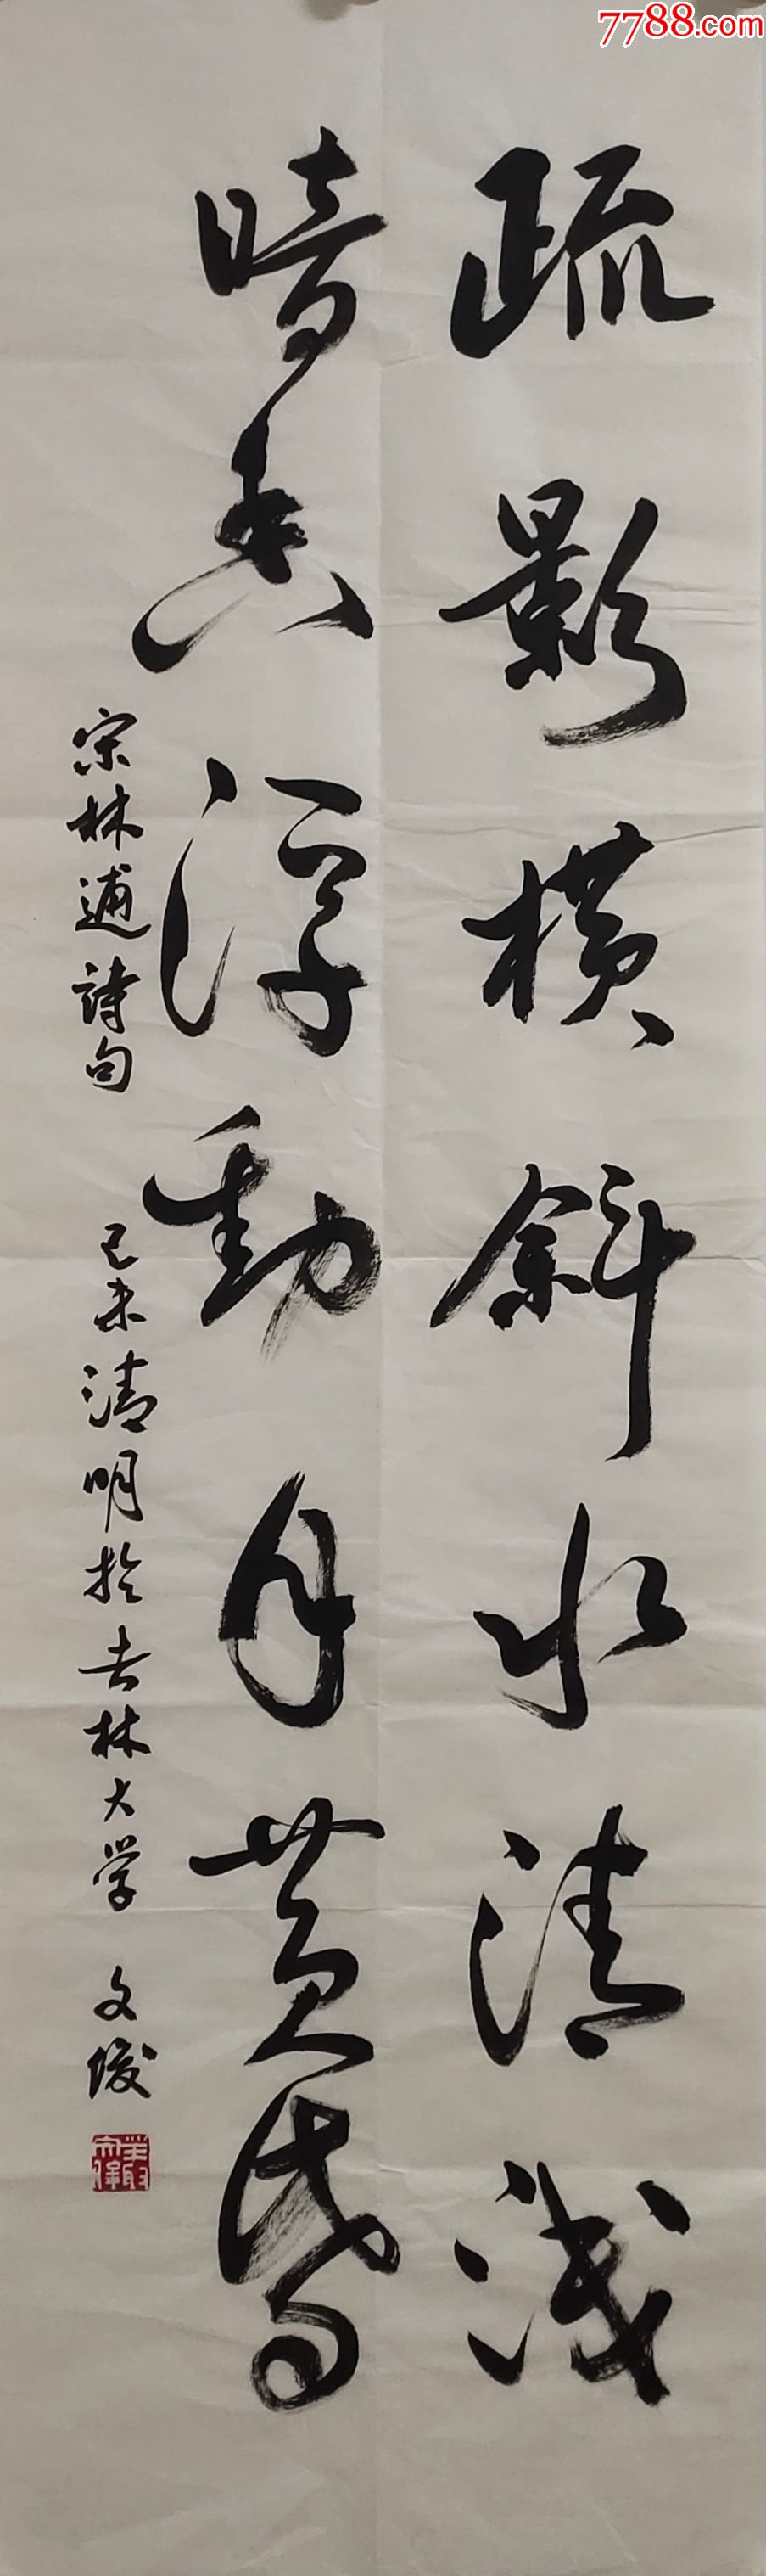 7788.com
疏影横斜水清浅
暗香浮动月黄昏
宋林逋詩句 己未清明於吉林大学 文俊